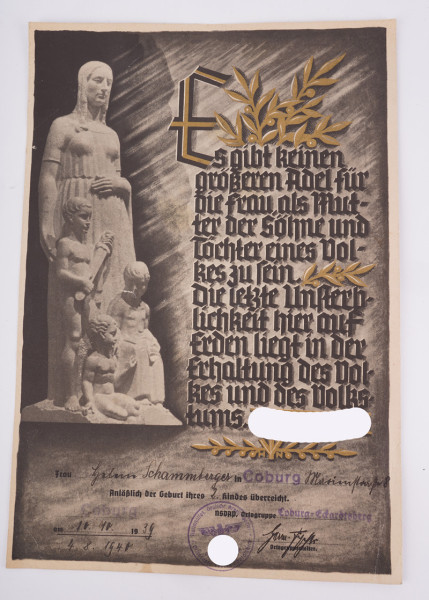 Es gibt keinen
größeren Adel für
die Frau als Mut-
ter der Söhne und
Töchter eines Vol-
kes zu sein.
Die letzte Unsterb-
lichkeit hier auf
Erden liegt in der
Erhaltung des Vol-
kes und des Volks-
tums.
Frau Schammberger in Coburg
Anläßlich der Geburt ihres 2. Kindes überreicht.
Coburg NSDAP, Ortsgruppe Coburg-Eckardtsberg
den 10. 10. 1939
4. 8. 1940